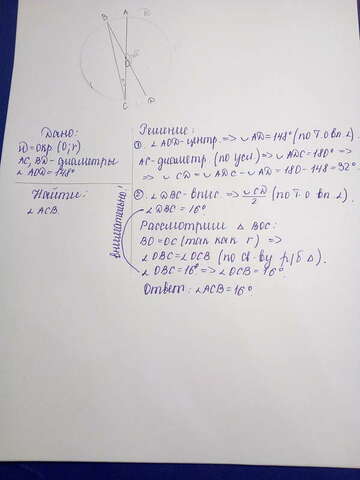 B
A
O
C
D
Дано:
окр (O; r)
AC, BD - диаметры
∠AOD = 148°
Найти:
∠ACB.
Решение:
① ∠AOD - центр. => ∪AD = 148° (по т. о вп. ∠).
AC - диаметр (по усл.) => ∪ADC = 180° =>
=> ∪CD = ∪ADC - ∪AD = 180 - 148 = 32°.
② ∠DBC - впис. => ∪CD/2 (по т. о вп ∠).
∠DBC = 16°
внимательно!
Рассмотрим △BOC:
BO = OC (так как r) =>
∠OBC = ∠OCB (по св-ву р/б △).
∠OBC = 16° => ∠OCB = 16°.
Ответ: ∠ACB = 16°